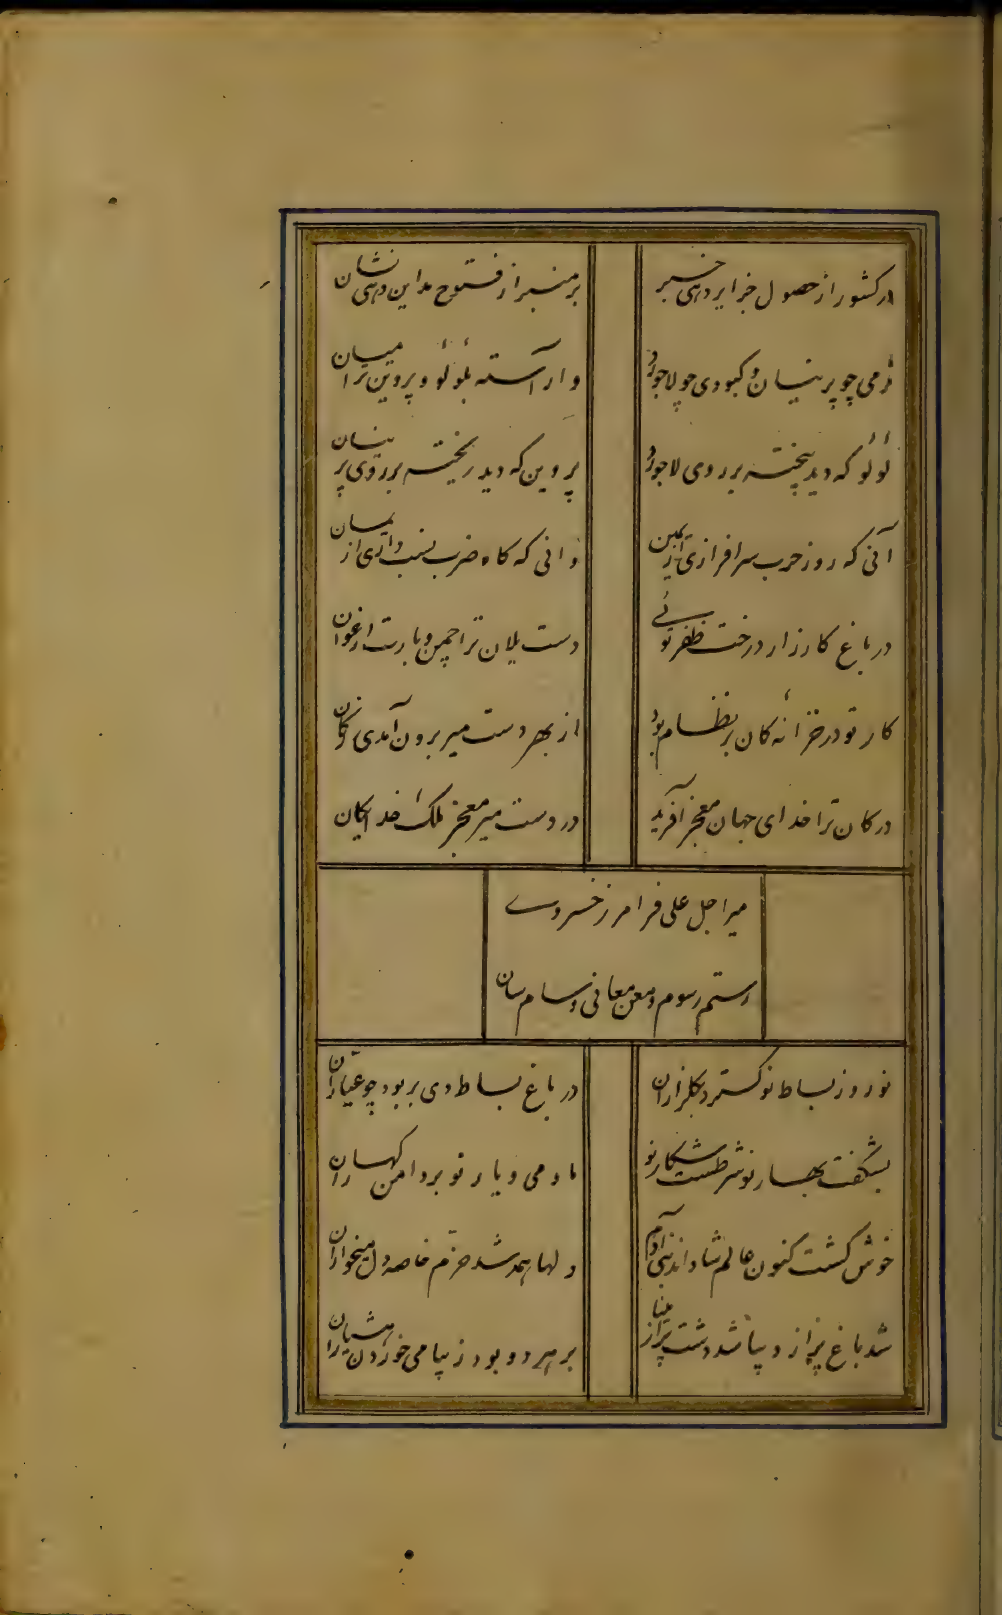 در کشور از حصول جزایر دهی خبر
بر منبر از فتوح مداین دهی نشان
نرمی چو پرنیان و کبودی چو لاجورد
و آراسته بلؤلؤ و پروین ترا میان
لؤلؤ که دید بیخته بر روی لاجورد
پروین که دید ریخته بر روی پرنیان
آنی که روز حرب سرافرازی از یمین
وانی که کاه ضرب نسب داری از یمان
در باغ کارزار درخت ظفر توئی
دست یلان ترا چمن و بارت ارغوان
کار تو در خزانهٔ کان بر نظام بود
از بهر دست میر برون آمدی ز کان
در کان ترا خدای جهان معجز آفرید
در دست میر معجز ملک خدایکان
میر اجل علی فرامرز خسروی
رستم رسوم و معن معانی و سام سان
نوروز بساط نو گسترد بکلزاران
در باغ بساط دی بربود چو عیاران
بشکفت بهار نو شرطست شکار نو
ما و می و یار نو بر دامن کهساران
خوش کشت کنون عالم شادند بنی آدم
دلها همه شد خرم خاصه دل میخواران
شد باغ پر از دیبا شد دشت پر از مینا
بر هر دو بود زیبا می خوردن هشیاران